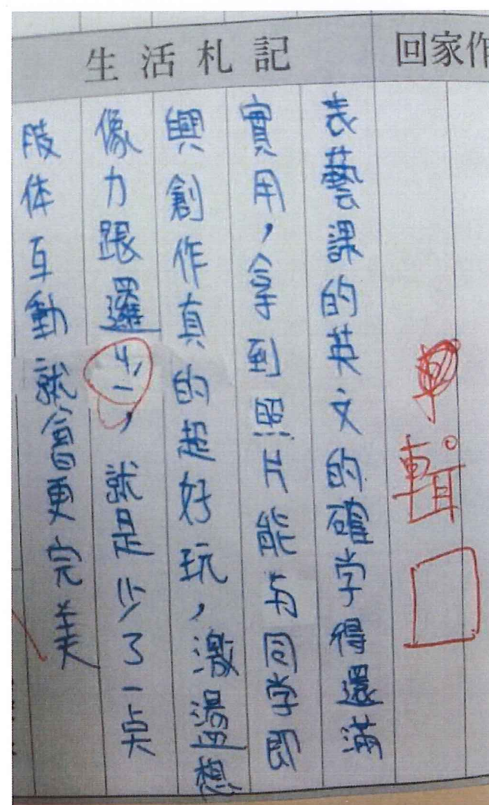 生活札記
回家作
輯
表藝課的英文的確学得還滿
實用，拿到照片能与同学即
興創作真的超好玩，激盪想
像力跟邏ㄐㄧˊ，就是少了一点
肢体互動就會更完美